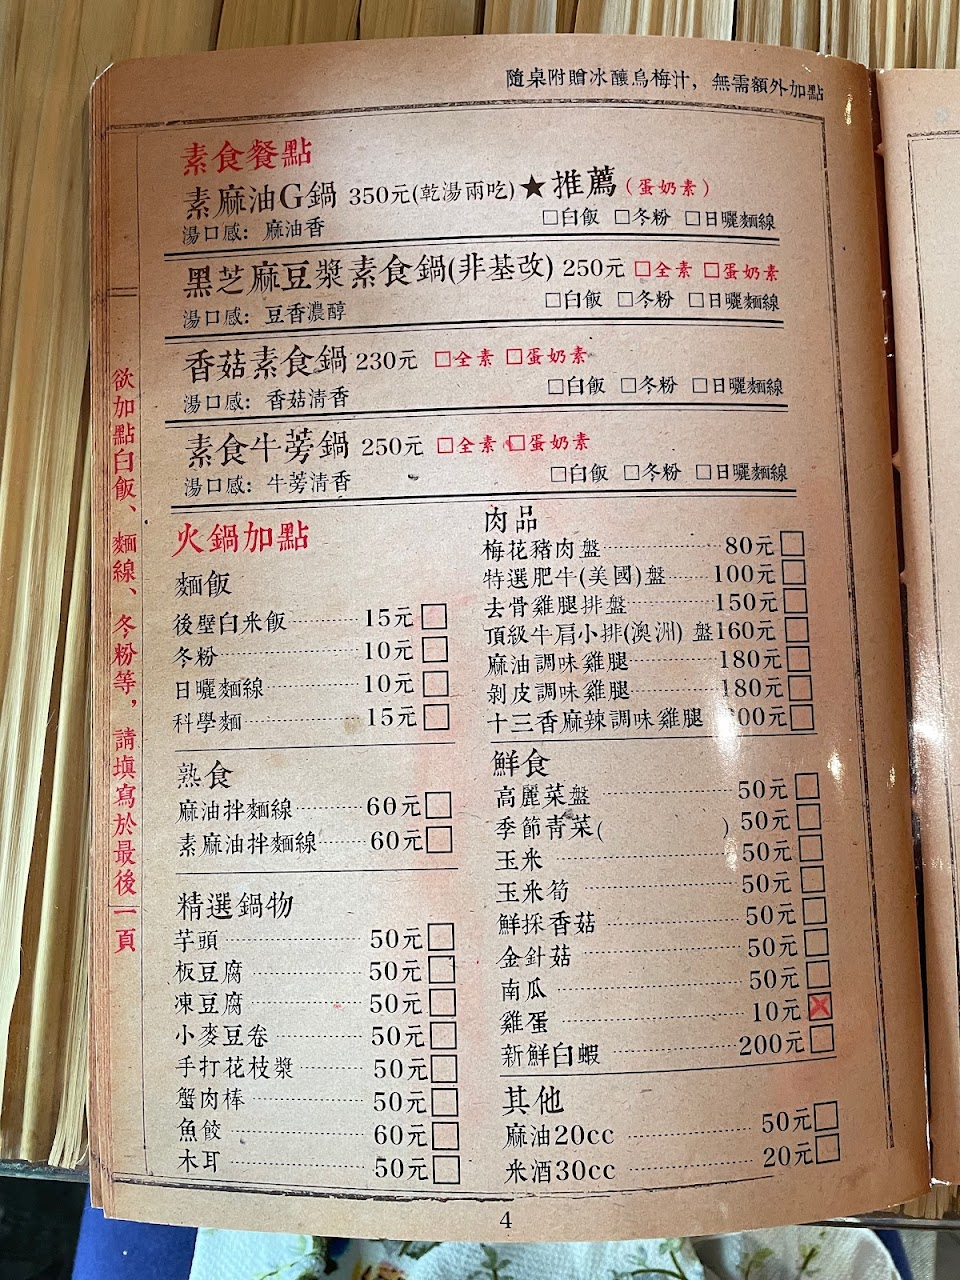 隨桌附贈冰釀烏梅汁，無需額外加點
素食餐點
素麻油G鍋 350元(乾湯兩吃)★推薦(蛋奶素)
湯口感：麻油香 □白飯 □冬粉 □日曬麵線
黑芝麻豆漿素食鍋(非基改) 250元 □全素 □蛋奶素
湯口感：豆香濃醇 □白飯 □冬粉 □日曬麵線
香菇素食鍋 230元 □全素 □蛋奶素
湯口感：香菇清香 □白飯 □冬粉 □日曬麵線
素食牛蒡鍋 250元 □全素 □蛋奶素
湯口感：牛蒡清香 □白飯 □冬粉 □日曬麵線
欲加點白飯、麵線、冬粉等，請填寫於最後一頁
火鍋加點
麵飯
後壁白米飯 15元 □
冬粉 10元 □
日曬麵線 10元 □
科學麵 15元 □
熟食
麻油拌麵線 60元 □
素麻油拌麵線 60元 □
精選鍋物
芋頭 50元 □
板豆腐 50元 □
凍豆腐 50元 □
小麥豆卷 50元 □
手打花枝漿 50元 □
蟹肉棒 50元 □
魚餃 60元 □
木耳 50元 □
肉品
梅花豬肉盤 80元 □
特選肥牛(美國)盤 100元 □
去骨雞腿排盤 150元 □
頂級牛肩小排(澳洲) 盤160元 □
麻油調味雞腿 180元 □
剝皮調味雞腿 180元 □
十三香麻辣調味雞腿 00元 □
鮮食
高麗菜盤 50元 □
季節青菜( ) 50元 □
玉米 50元 □
玉米筍 50元 □
鮮採香菇 50元 □
金針菇 50元 □
南瓜 50元 □
雞蛋 10元 ☒
新鮮白蝦 200元 □
其他
麻油20cc 50元 □
米酒30cc 20元 □
4